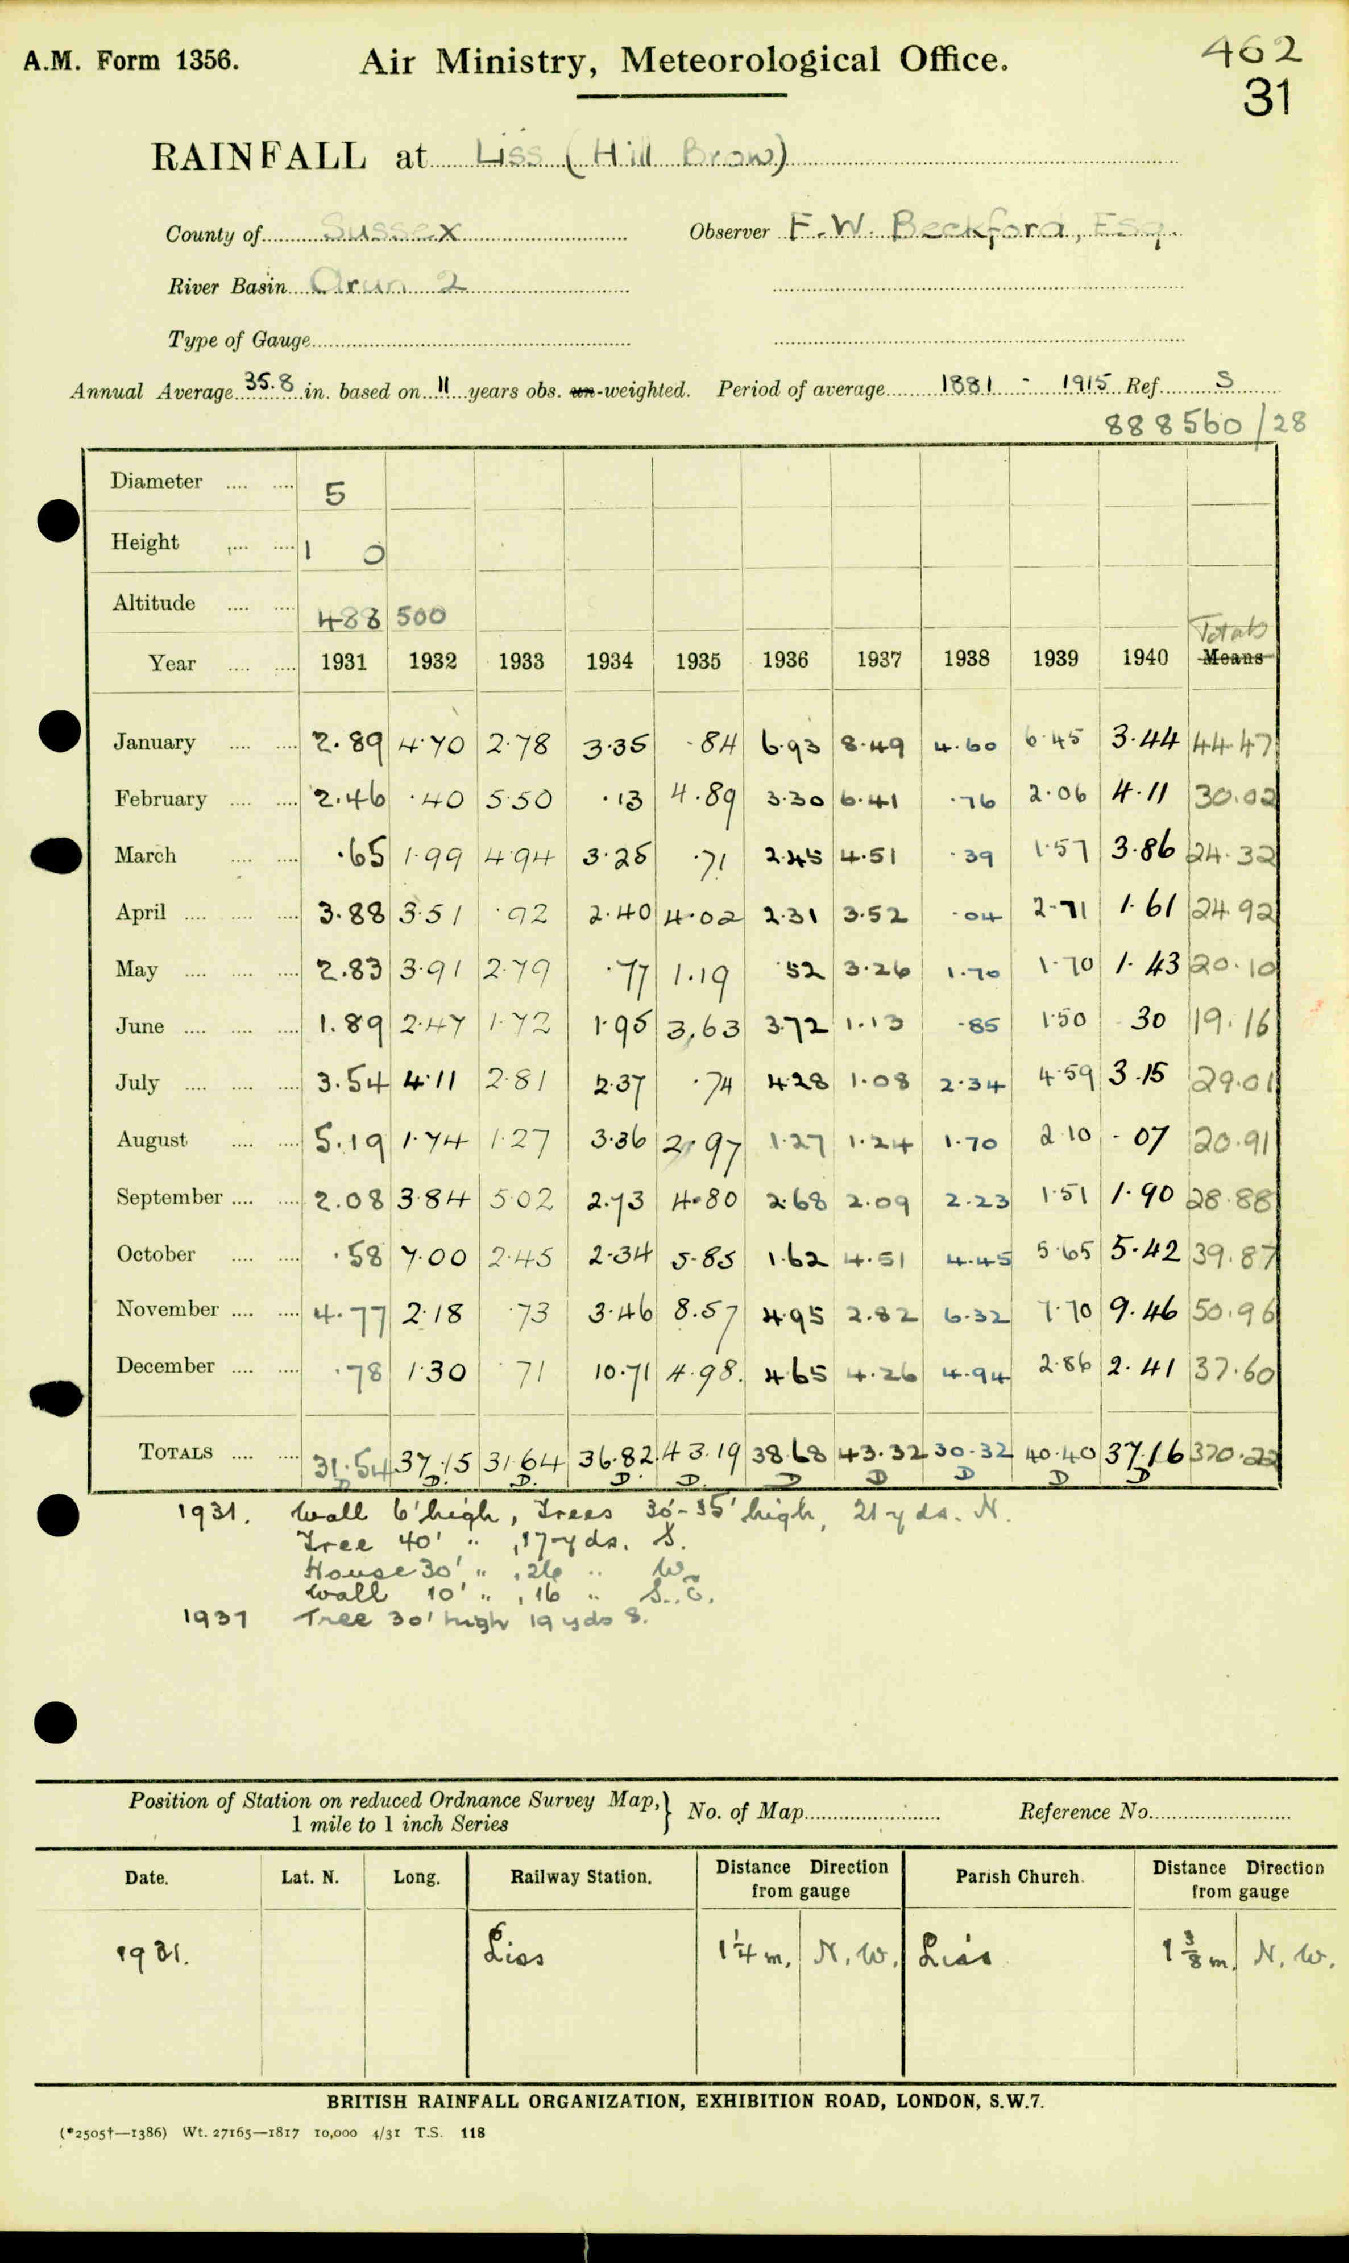 A.M. Form 1356. Air Ministry, Meteorological Office. 462
31
RAINFALL at Liss (Hill Brow)
County of Sussex Observer F.W. Beckford, Esq.
River Basin Arun 2
Type of Gauge
Annual Average 35.8 in. based on 11 years obs. un-weighted. Period of average 1881 - 1915 Ref. S
888560/28
Diameter 5
Height 1 0
Altitude 488 500
Totals
Year 1931 1932 1933 1934 1935 1936 1937 1938 1939 1940 Means
January 2.89 4.70 2.78 3.35 .84 6.93 8.49 4.60 6.45 3.44 44.47
February 2.46 .40 5.50 .13 4.89 3.30 6.41 .76 2.06 4.11 30.02
March .65 1.99 4.94 3.25 .71 2.45 4.51 .39 1.57 3.86 24.32
April 3.88 3.51 .92 2.40 4.02 2.31 3.52 .04 2.71 1.61 24.92
May 2.83 3.91 2.79 .77 1.19 .52 3.26 1.70 1.70 1.43 20.10
June 1.89 2.47 1.72 1.95 3.63 3.72 1.13 .85 1.50 .30 19.16
July 3.54 4.11 2.81 2.37 .74 4.28 1.08 2.34 4.59 3.15 29.01
August 5.19 1.74 1.27 3.36 2.97 1.27 1.24 1.70 2.10 .07 20.91
September 2.08 3.84 5.02 2.73 4.80 2.68 2.09 2.23 1.51 1.90 28.88
October .58 7.00 2.45 2.34 5.85 1.62 4.51 4.45 5.65 5.42 39.87
November 4.77 2.18 .73 3.46 8.57 4.95 2.82 6.32 7.70 9.46 50.96
December .78 1.30 .71 10.71 4.98 4.65 4.26 4.94 2.86 2.41 37.60
TOTALS 31.54 37.15 31.64 36.82 43.19 38.68 43.32 30.32 40.40 37.16 370.22
D D. D. D. D. D D D D D
1931. Wall 6' high, Trees 30'-35' high, 21 yds. N.
Tree 40' " , 17 yds. S.
House 30' " , 26 " W.
Wall 10' " , 16 " S.E.
1937 Tree 30' high 19 yds S.
Position of Station on reduced Ordnance Survey Map, } No. of Map Reference No.
1 mile to 1 inch Series
Date. Lat. N. Long. Railway Station. Distance Direction from gauge Parish Church. Distance Direction from gauge
1931. Liss 1 1/4 m. N.W. Liss 1 3/8 m. N.W.
BRITISH RAINFALL ORGANIZATION, EXHIBITION ROAD, LONDON, S.W.7.
(*2505†—1386) Wt. 27165—1817 10,000 4/31 T.S. 118